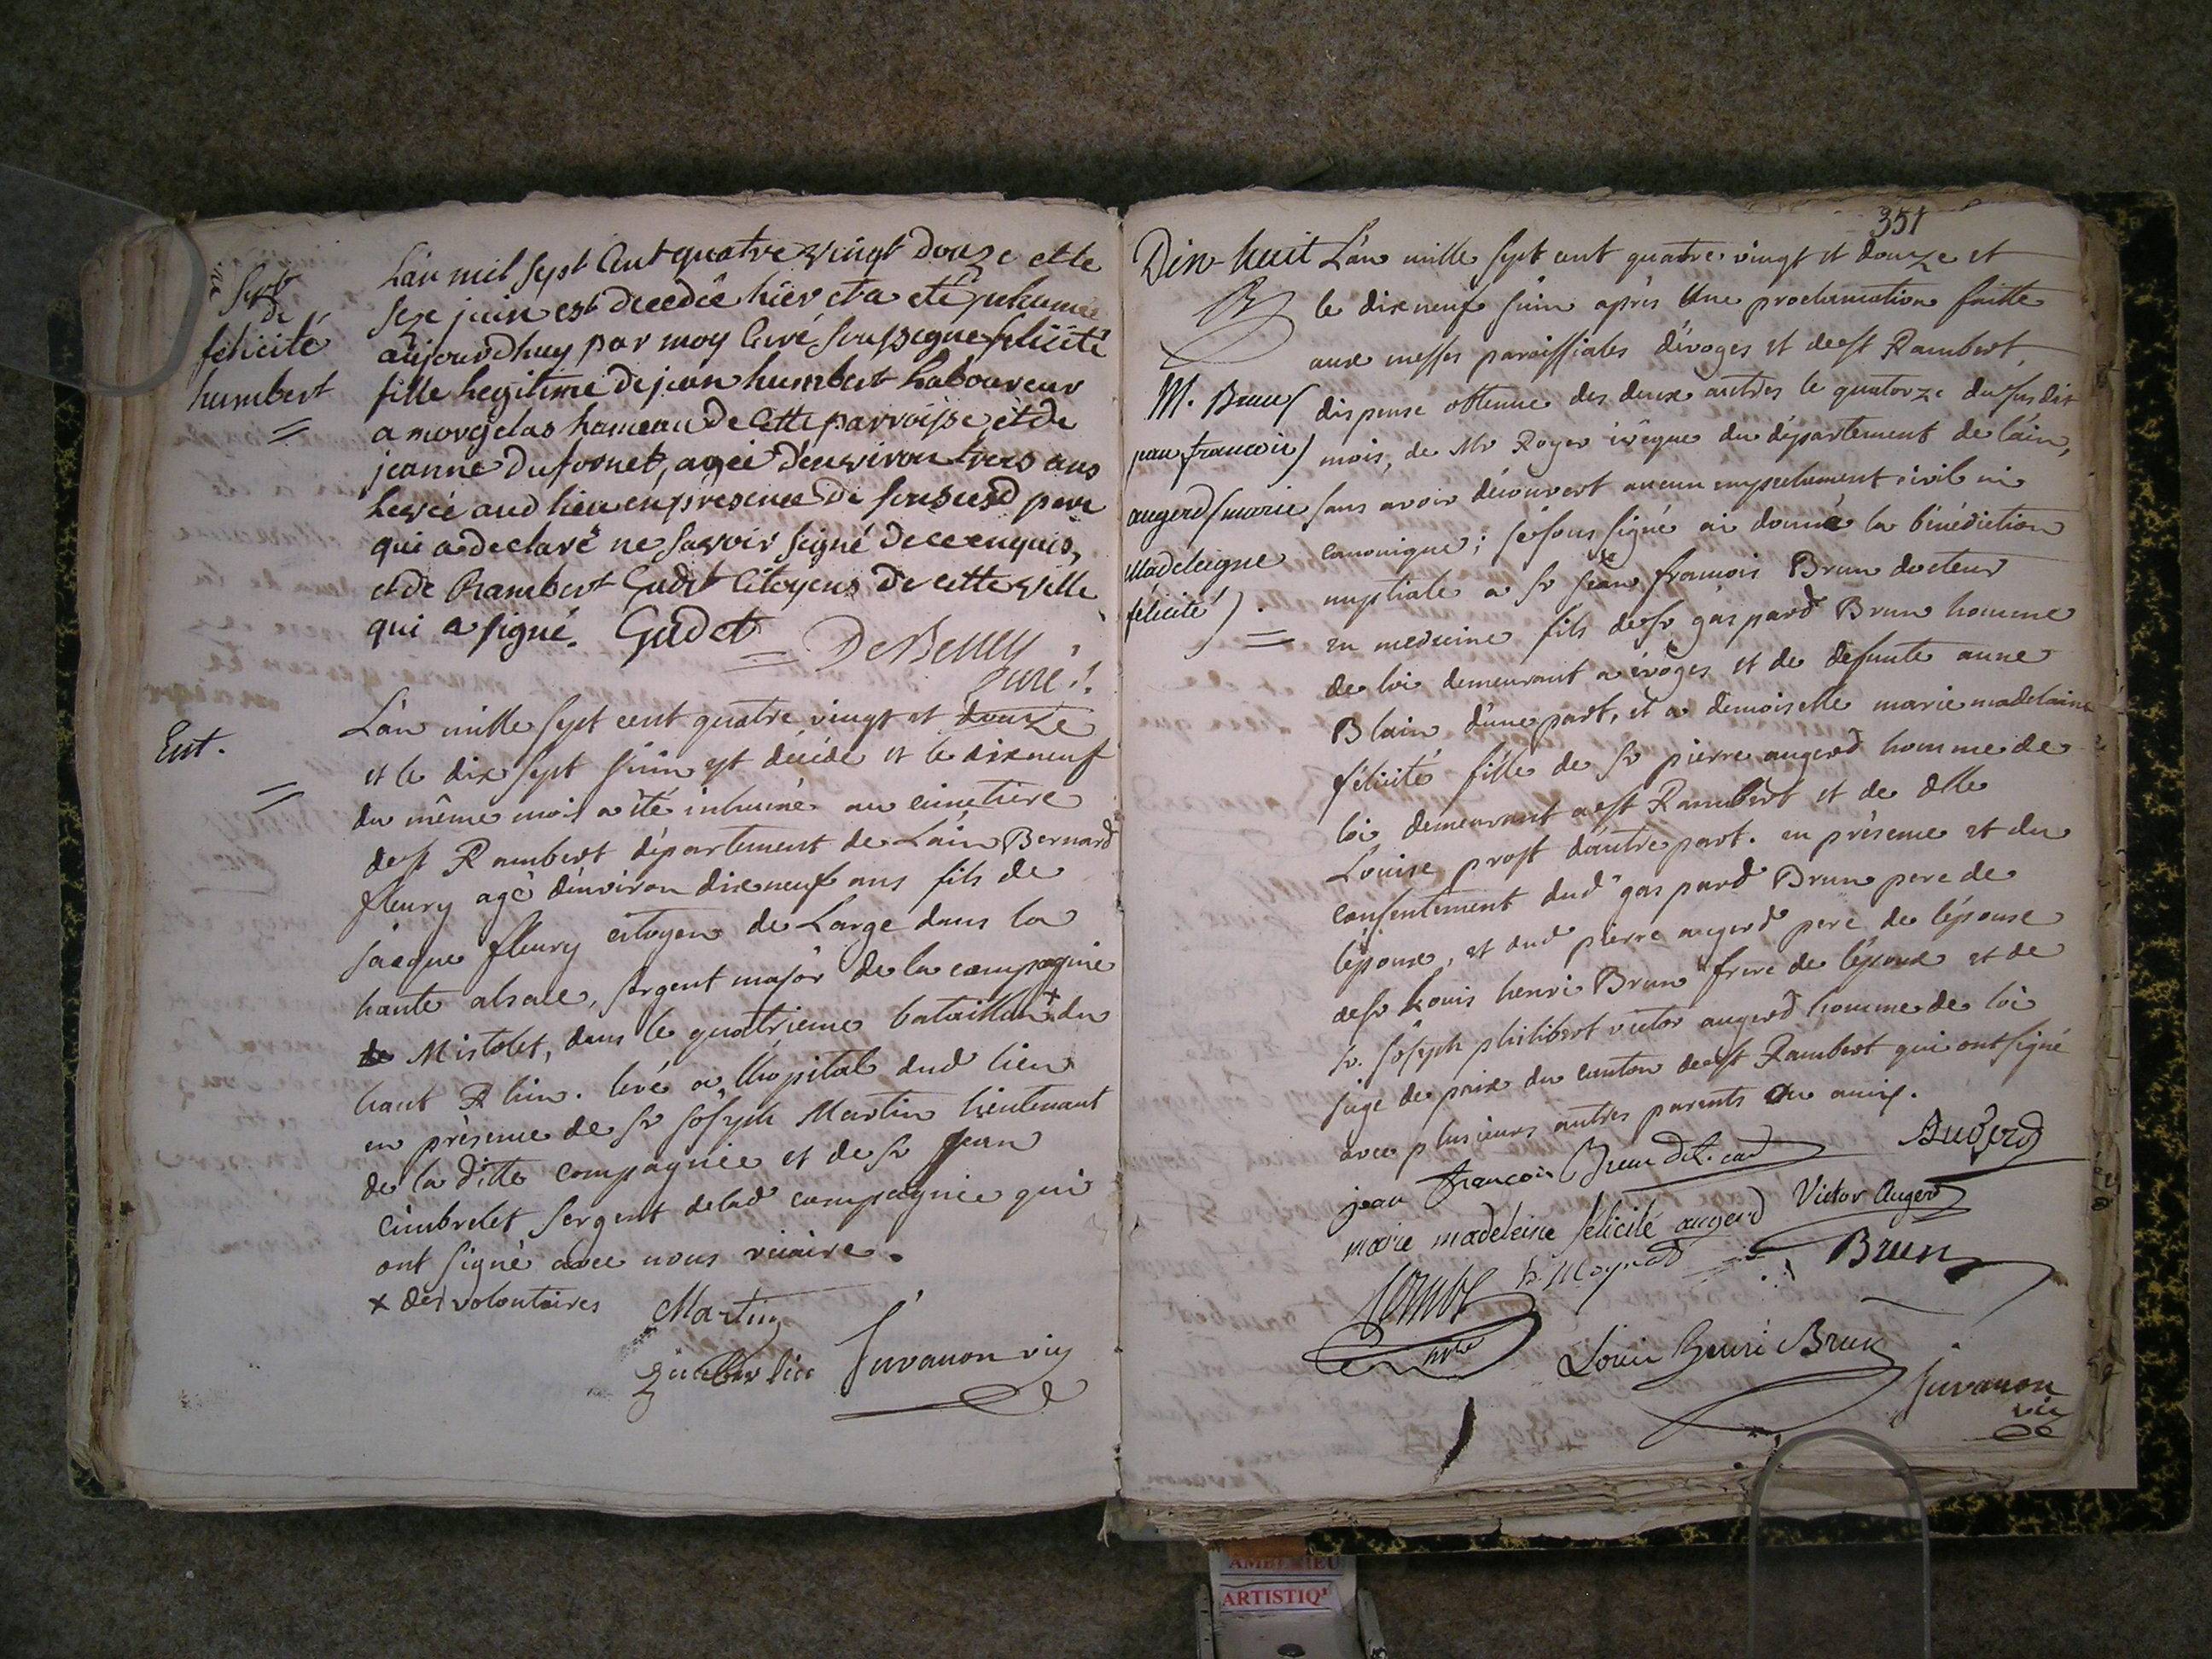 Sept
de
félicité
humbert
L'an mil sept Cent quatre vingt douze et le
seze juin est decedée hier et a eté inhumée
aujourdhuy par moy Curé soussigné félicité
fille legitime de jean humbert Laboureur
a morgelas hameau de cette parroisse, et de
jeanne dufornet, agée d'environ trois ans
Levée aud lieu en presence de sousd pere
qui a declaré ne savoir signé de ce enquis,
et de Rambert Gudet Citoyens de cette ville
qui a signé. Gudet
DeBeney
curé
Ent.
L'an mille sept cent quatre vingt et douze
et le dix sept juin est décédé et le dixneuf
du même mois a été inhumé au cimetière
de st Rambert département de Lain Bernard
fleury agé d'environ dixneuf ans fils de
jacque fleury citoyen de Large dans la
haute alsace, sergent major de la compagnie
de Mistolet, dans le quatrieme bataillon + du
haut Rhin. levé a lhôpital dud lieu
en présence de sr joseph Martin lieutenant
de la ditte compagnie et de sr jean
Cimbrelet sergent de lad compagnie qui
ont signé avec nous vicaire.
+ des volontaires
Martin
Juvanon vic
351
Dix-huit
M. Brun
jean francois
augerd marie
Madeleigne
félicité
L'an mille sept cent quatre vingt et douze et
le dixneuf juin après Une proclamation faitte
aux messes paroissiales d'evoges et de st Rambert,
dispense obtenue des deux autres le quatorze du susdit
mois, de Mr Royer évêque du département de l'ain,
sans avoir découvert aucun empechement civil ni
canonique; je soussigné ai donné la bénédiction
nuptiale a sr jean francois Brun docteur
en medecine fils de sr gaspard Brun homme
de loi demeurant a évoges et de defunte anne
Blain d'une part, et a demoiselle marie madelaine
félicité fille de sr pierre augerd homme de
loi demeurant a st Rambert et de dlle
Louise prost d'autre part. en présence et du
consentement dud gaspard Brun pere de
l'époux, et dud pierre augerd pere de l'épouse
de sr Louis henri Brun frere de l'époux et de
sr. joseph philibert victor augerd homme de loi
juge de paix du canton de st Rambert qui ont signé
avec plusieurs autres parents ou amis.
jean francois Brun
Augerd
marie madeleine félicité augerd
Victor Augerd
Brun
Louis henri Brun
Juvanon
vic
AMBERIEU
ARTISTIQ'